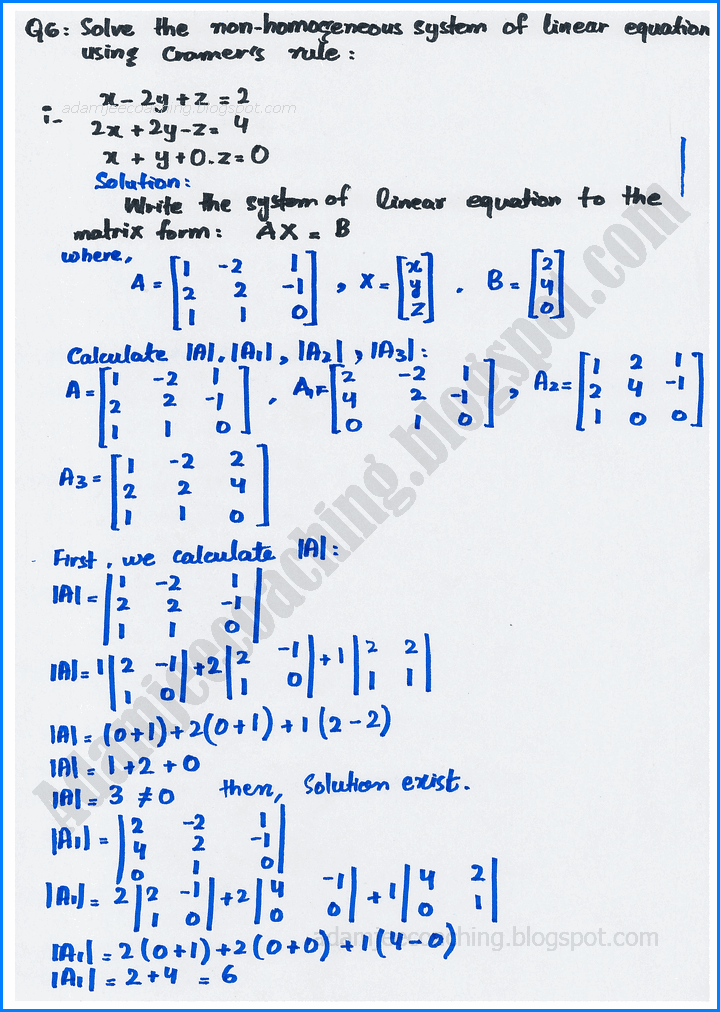 Q6: Solve the non-homogeneous system of linear equation
using Cramer's rule:
adamjeecoaching.blogspot.com
i- x - 2y + z = 2
2x + 2y - z = 4
x + y + 0.z = 0
Solution:
Write the system of linear equation to the
matrix form: AX = B
where,
A = [1 -2 1; 2 2 -1; 1 1 0], X = [x; y; z]. B = [2; 4; 0]
Calculate |A|, |A1|, |A2|, |A3|:
A = [1 -2 1; 2 2 -1; 1 1 0], A1 = [2 -2 1; 4 2 -1; 0 1 0], A2 = [1 2 1; 2 4 -1; 1 0 0]
A3 = [1 -2 2; 2 2 4; 1 1 0]
First, we calculate |A|:
|A| = |1 -2 1; 2 2 -1; 1 1 0|
|A| = 1|2 -1; 1 0| + 2|2 -1; 1 0| + 1|2 2; 1 1|
|A| = (0+1) + 2(0+1) + 1(2-2)
|A| = 1+2+0
|A| = 3 ≠ 0 then, Solution exist.
|A1| = |2 -2 1; 4 2 -1; 0 1 0|
|A1| = 2|2 -1; 1 0| + 2|4 -1; 0 0| + 1|4 2; 0 1|
|A1| = 2(0+1) + 2(0+0) + 1(4-0)
adamjeecoaching.blogspot.com
|A1| = 2+4 = 6
Adamjeecoaching.blogspot.com